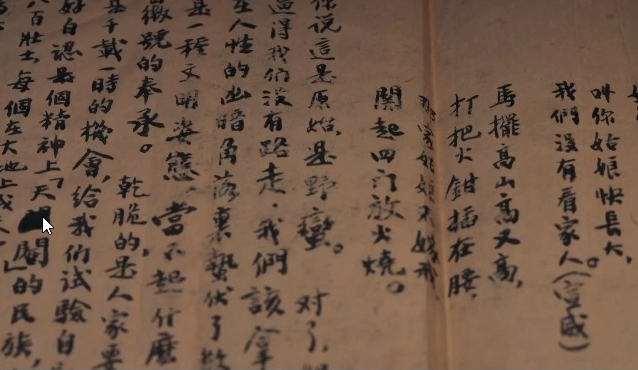 叫你姑娘快長大,
我們沒有看家人(宣威)
馬擺高山高又高,
打把火鉗插在腰,
那家姑娘不嫁我,
関起四门放火燒。
你说這是原始,是野蠻。对了,
逼得我们沒有路走,我們該拿
在人性的幽暗角落裏蟄伏了
是一種文明姿態,當不起什麼
徽號的奉承。乾脆的是人家要
是千載一時的機會,給我们试驗自
好自認是個精神上「天閹」的民族,
八百壯士,每個在大地上